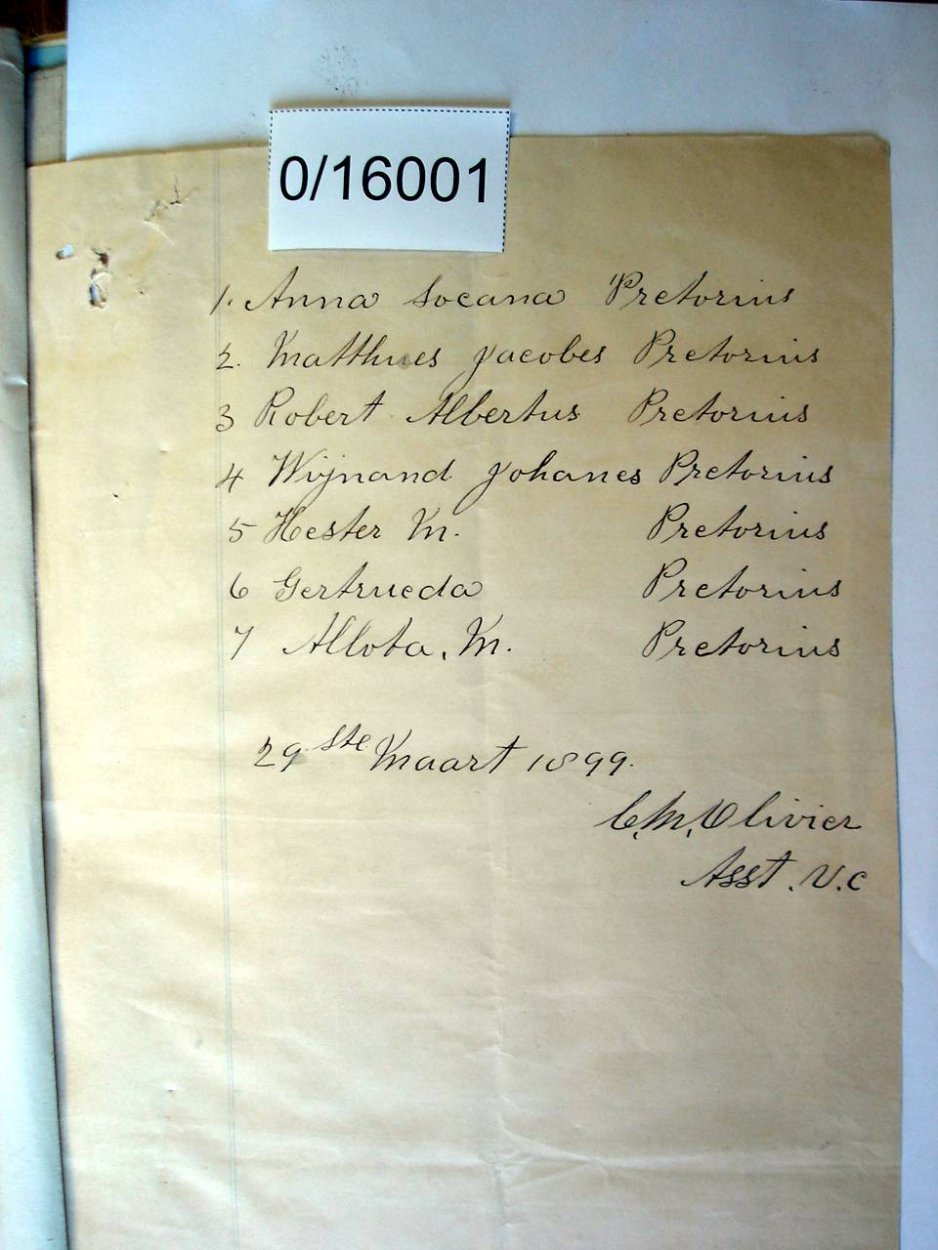 0/16001
1. Anna Socana Pretorius
2. Matthues Jacobes Pretorius
3 Robert Albertus Pretorius
4 Wijnand Johanes Pretorius
5 Hester M. Pretorius
6 Gertrueda Pretorius
7 Allota, M. Pretorius
29ste Maart 1899.
C.M. Olivier
Asst. V.C